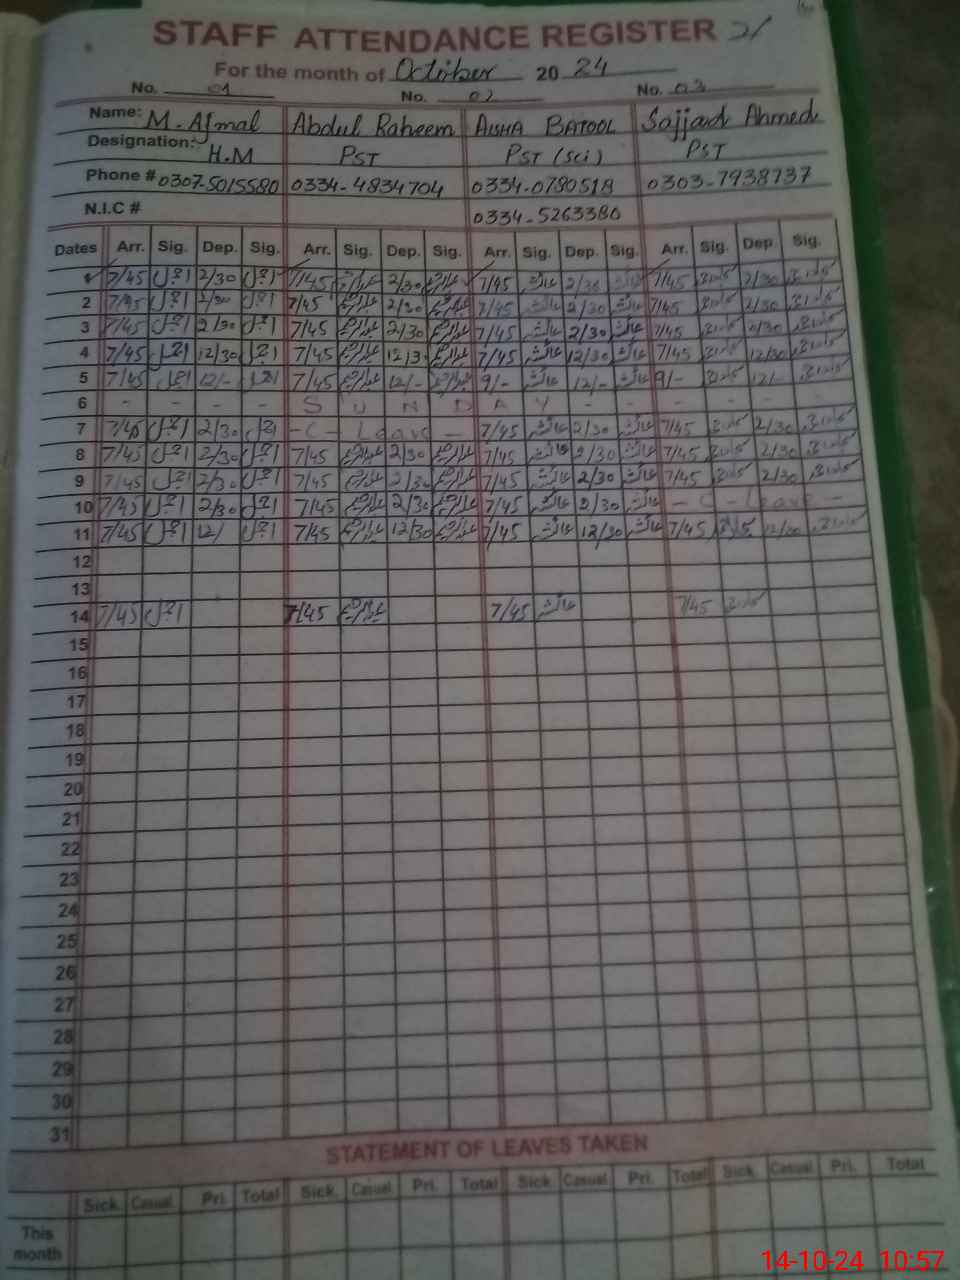 STAFF ATTENDANCE REGISTER 21
For the month of October 2024
No. 01 No. 02 No. 03
Name: M. Ajmal Abdul Raheem AISHA BATOOL Sajjad Ahmed
Designation: H.M PST PST (Sci) PST
Phone # 0307-5015580 0334-4834704 0334-0780518 0303-7938737
N.I.C # 0334-5263380
Dates Arr. Sig. Dep. Sig. Arr. Sig. Dep. Sig. Arr. Sig. Dep. Sig. Arr. Sig. Dep. Sig.
1 7/45 اجمل 2/30 اجمل 7/45 2/30 7/45 2/30 7/45 2/30
2 7/45 اجمل 2/30 اجمل 7/45 2/30 7/45 2/30 7/45 2/30
3 7/45 اجمل 2/30 اجمل 7/45 2/30 7/45 2/30 7/45 2/30
4 7/45 اجمل 12/30 اجمل 7/45 12/3 7/45 12/30 7/45 12/30
5 7/45 اجمل 12/- اجمل 7/45 12/- 9/- 12/- 9/- 12/-
6 - - - - S U N D A Y - - - - -
7 7/45 اجمل 2/30 اجمل - C - Leave - 7/45 2/30 7/45 2/30
8 7/45 اجمل 2/30 اجمل 7/45 2/30 7/45 2/30 7/45 2/30
9 7/45 اجمل 2/30 اجمل 7/45 2/30 7/45 2/30 7/45 2/30
10 7/45 اجمل 2/30 اجمل 7/45 2/30 7/45 2/30 - C - Leave -
11 7/45 اجمل 12/ اجمل 7/45 12/30 7/45 12/30 7/45 12/30
12
13
14 7/45 اجمل 7/45 7/45 7/45
15
16
17
18
19
20
21
22
23
24
25
26
27
28
29
30
31
STATEMENT OF LEAVES TAKEN
Sick. Casual Pri. Total Sick. Casual Pri. Total Sick. Casual Pri. Total Sick. Casual Pri. Total
This
month
14-10-24 10:57